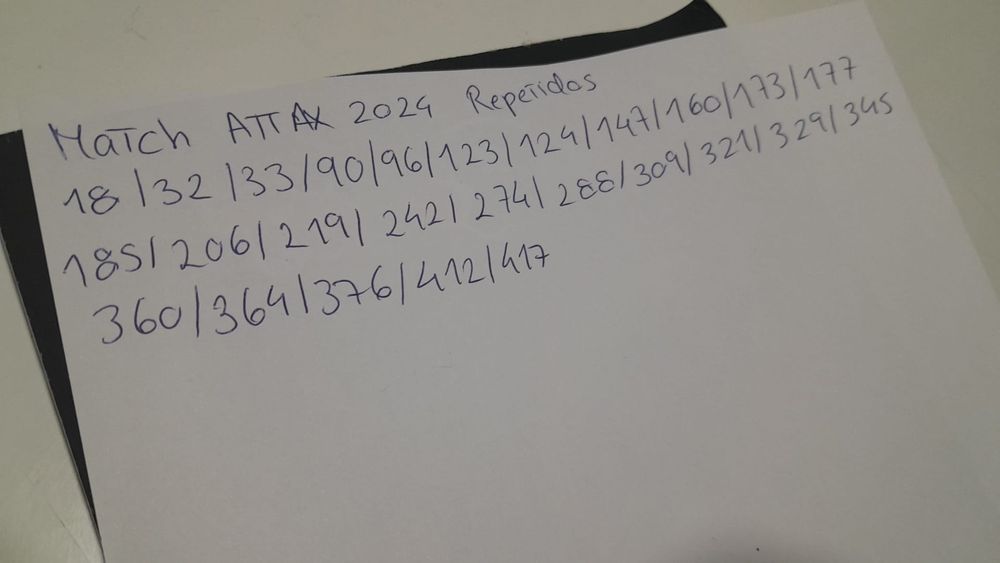 Match ATTAX 2024 Repetidos
18/32/33/90/96/123/124/147/160/173/177
185/206/219/242/274/288/309/321/329/345
360/364/376/412/417